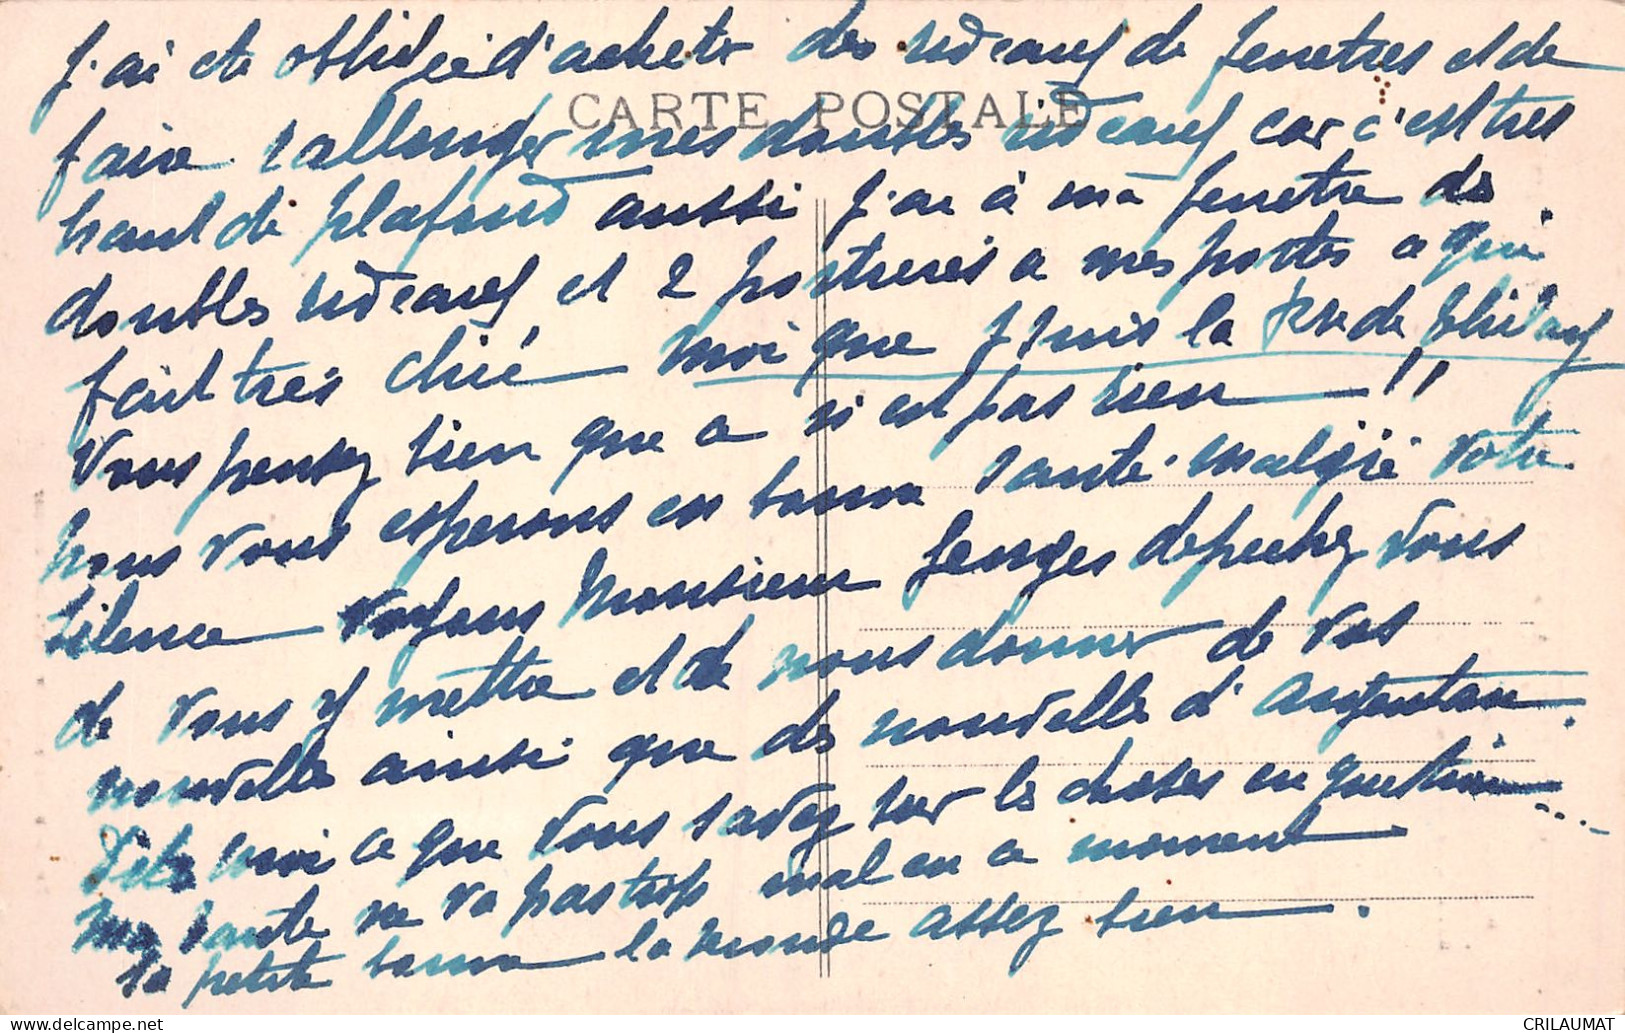 J'ai ete obligée d'acheter des rideaux de fenetres et de
CARTE POSTALE
faire rallonger mes doubles rideaux car c'est tres
haut de plafond aussi j'ai à ma fenetre des
doubles rideaux et 2 portieres a mes portes a qui
fait tres chic moi que j'suis la
Vous pensez bien que a n'est pas rien !!
Nous vous esperons en bonne sante malgré votre
silence voyons Monsieur Georges depechez vous
de vous y mettre et de nous donner de vos
nouvelles ainsi que des nouvelles d'Argentan.
Dites moi ce que vous savez sur les choses en question...
Ma sante ne va pas trop mal en ce moment
la petite bonne la monde assez bien.
CRILAUMAT